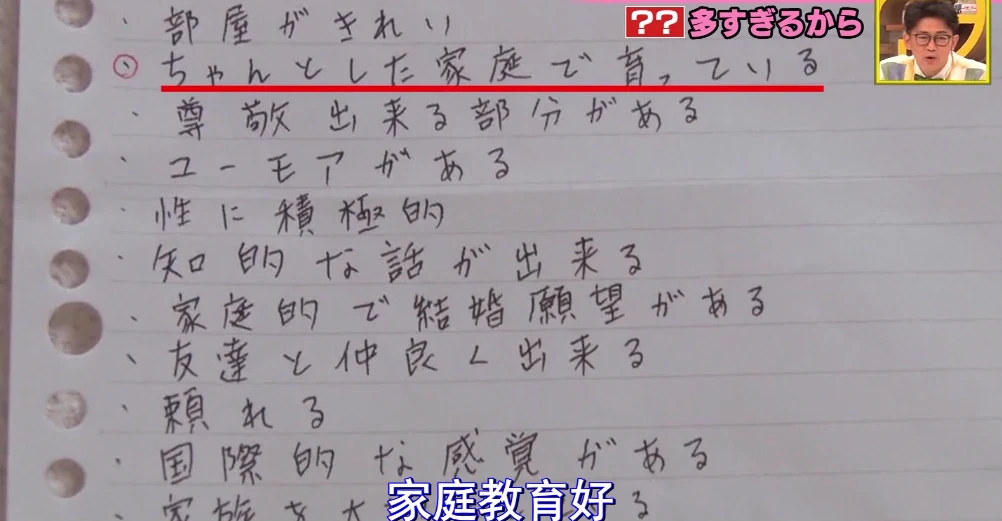 ??多すぎるから
部屋がきれい
ちゃんとした家庭で育っている
・尊敬出来る部分がある
・ユーモアがある
・性に積極的
・知的な話が出来る
家庭的で結婚願望がある
・友達と仲良く出来る
・頼れる
・国際的な感覚がある
家族を大 る
家庭教育好